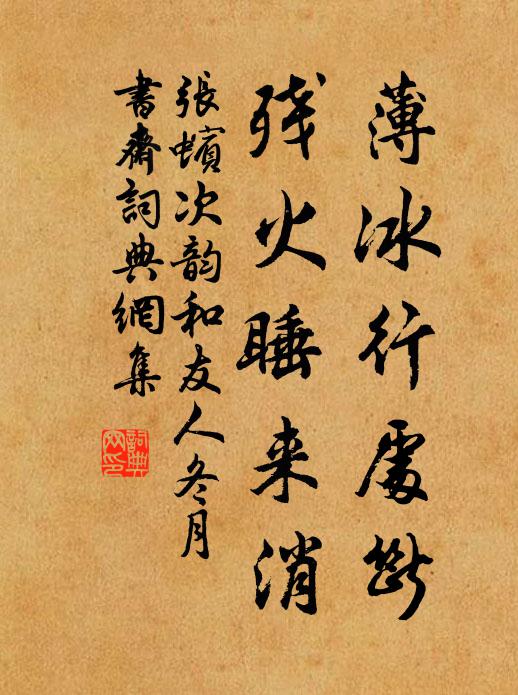 薄冰行處斷
殘火睡来消
張蠙次韵和友人冬月
書齋詞典網集
詞典
网印